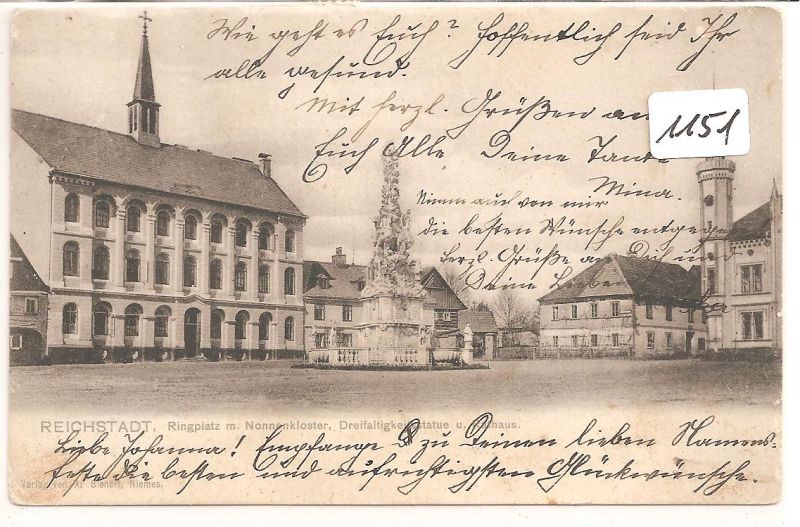 Wie geht es Euch? Hoffentlich seid Ihr
alle gesund.
Mit herzl. Grüßen an
Euch Alle Deine Tante
Mina.
1151
Nimm auch von mir
die besten Wünsche entgegen
herzl. Grüße an Dich und
Deine Lieben
REICHSTADT. Ringplatz m. Nonnenkloster, Dreifaltigkeitsstatue u. Rathaus.
Liebe Johanna! Empfange zu Deinem lieben Namens-
feste die besten und aufrichtigsten Glückwünsche.
Verlag von A. Bienert, Niemes.